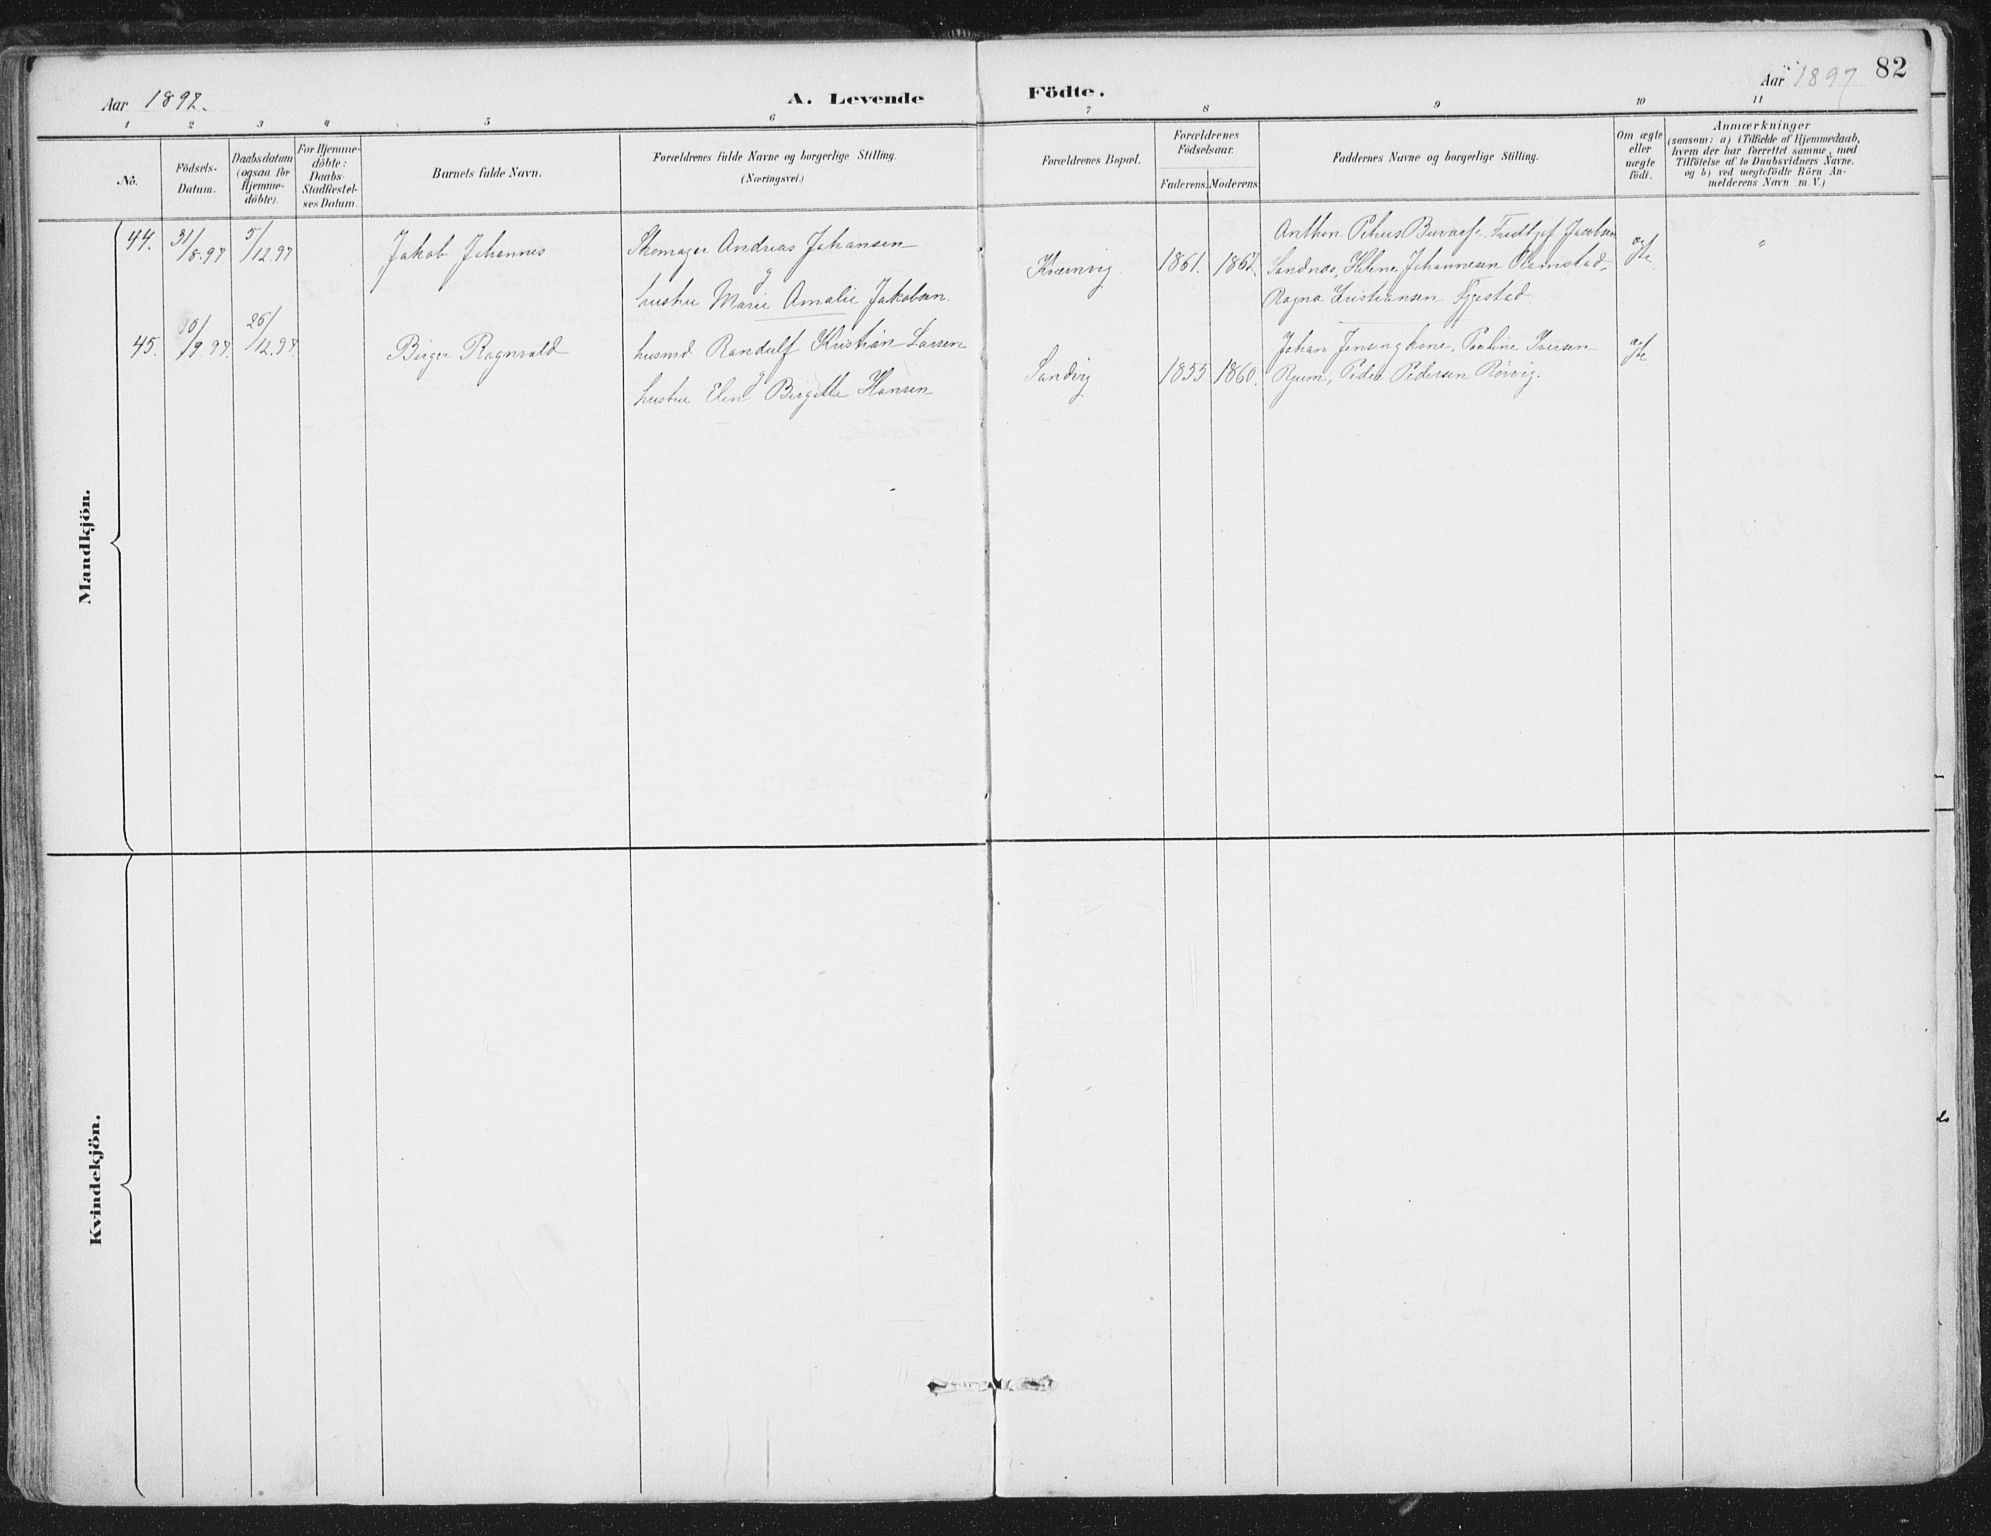 Aar 1897.
A. Levende
Födte.
Aar 1897
82
1 2 3 4 5 6 7 8 9 10 11
No.
Födsels-
Datum.
Daabsdatum
(ogsaa for
Hjemme-
döbte).
For Hjemme-
döbte:
Daabs-
Stadfæstel-
ses Datum.
Barnets fulde Navn.
Forældrenes fulde Navne og borgerlige Stilling.
(Næringsvei.)
Forældrenes Bopæl.
Forældrenes
Födselsaar.
Faderens.
Moderens.
Faddernes Navne og borgerlige Stilling.
Om ægte
eller
uægte
födt.
Anmærkninger
(saasom: a) i Tilfælde af Hjemmedaab,
hvem der har forrettet samme, med
Tilföielse af to Daabsvidners Navne.
og b) ved uægtefödte Börn An-
melderens Navn m. V.)
Mandkjön.
44.
31/8-97
5/12.97
Jakob Johannes
Skomager Andreas Johansen
g
hustru Marie Amalie Jakobsen.
Kværnvig.
1861.
1867.
Anthon Petrus Jacobsen
Sandnes, Helene Johannesen
Ragna Kristiansen
ægte.
"
45.
10/9 97.
26/12.97.
Birger Ragnvald
husmd Randulf Kristian Larsen
g
hustru Elen Birgitte Hansen
Sandvig
1855
1860.
Johan Pauline Iversen
Ryum, Peder Pedersen Rörvig.
ægte
Kvindekjön.